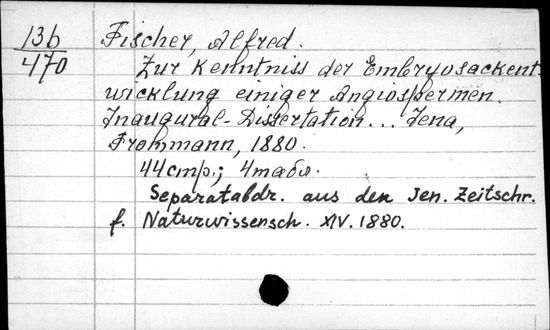 13b
470
Fischer, Alfred.
Zur Kenntniss der Embryosackent-
wicklung einiger Angiospermen.
Inaugural-Dissertation... Jena,
Frommann, 1880.
44стр.; 4табл.
Separatabdr. aus den Jen. Zeitschr.
f. Naturwissensch. XIV. 1880.